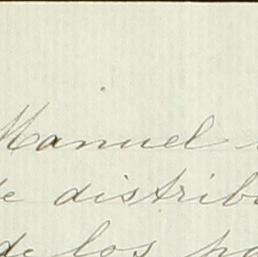 Manuel
de distrib
de los pa